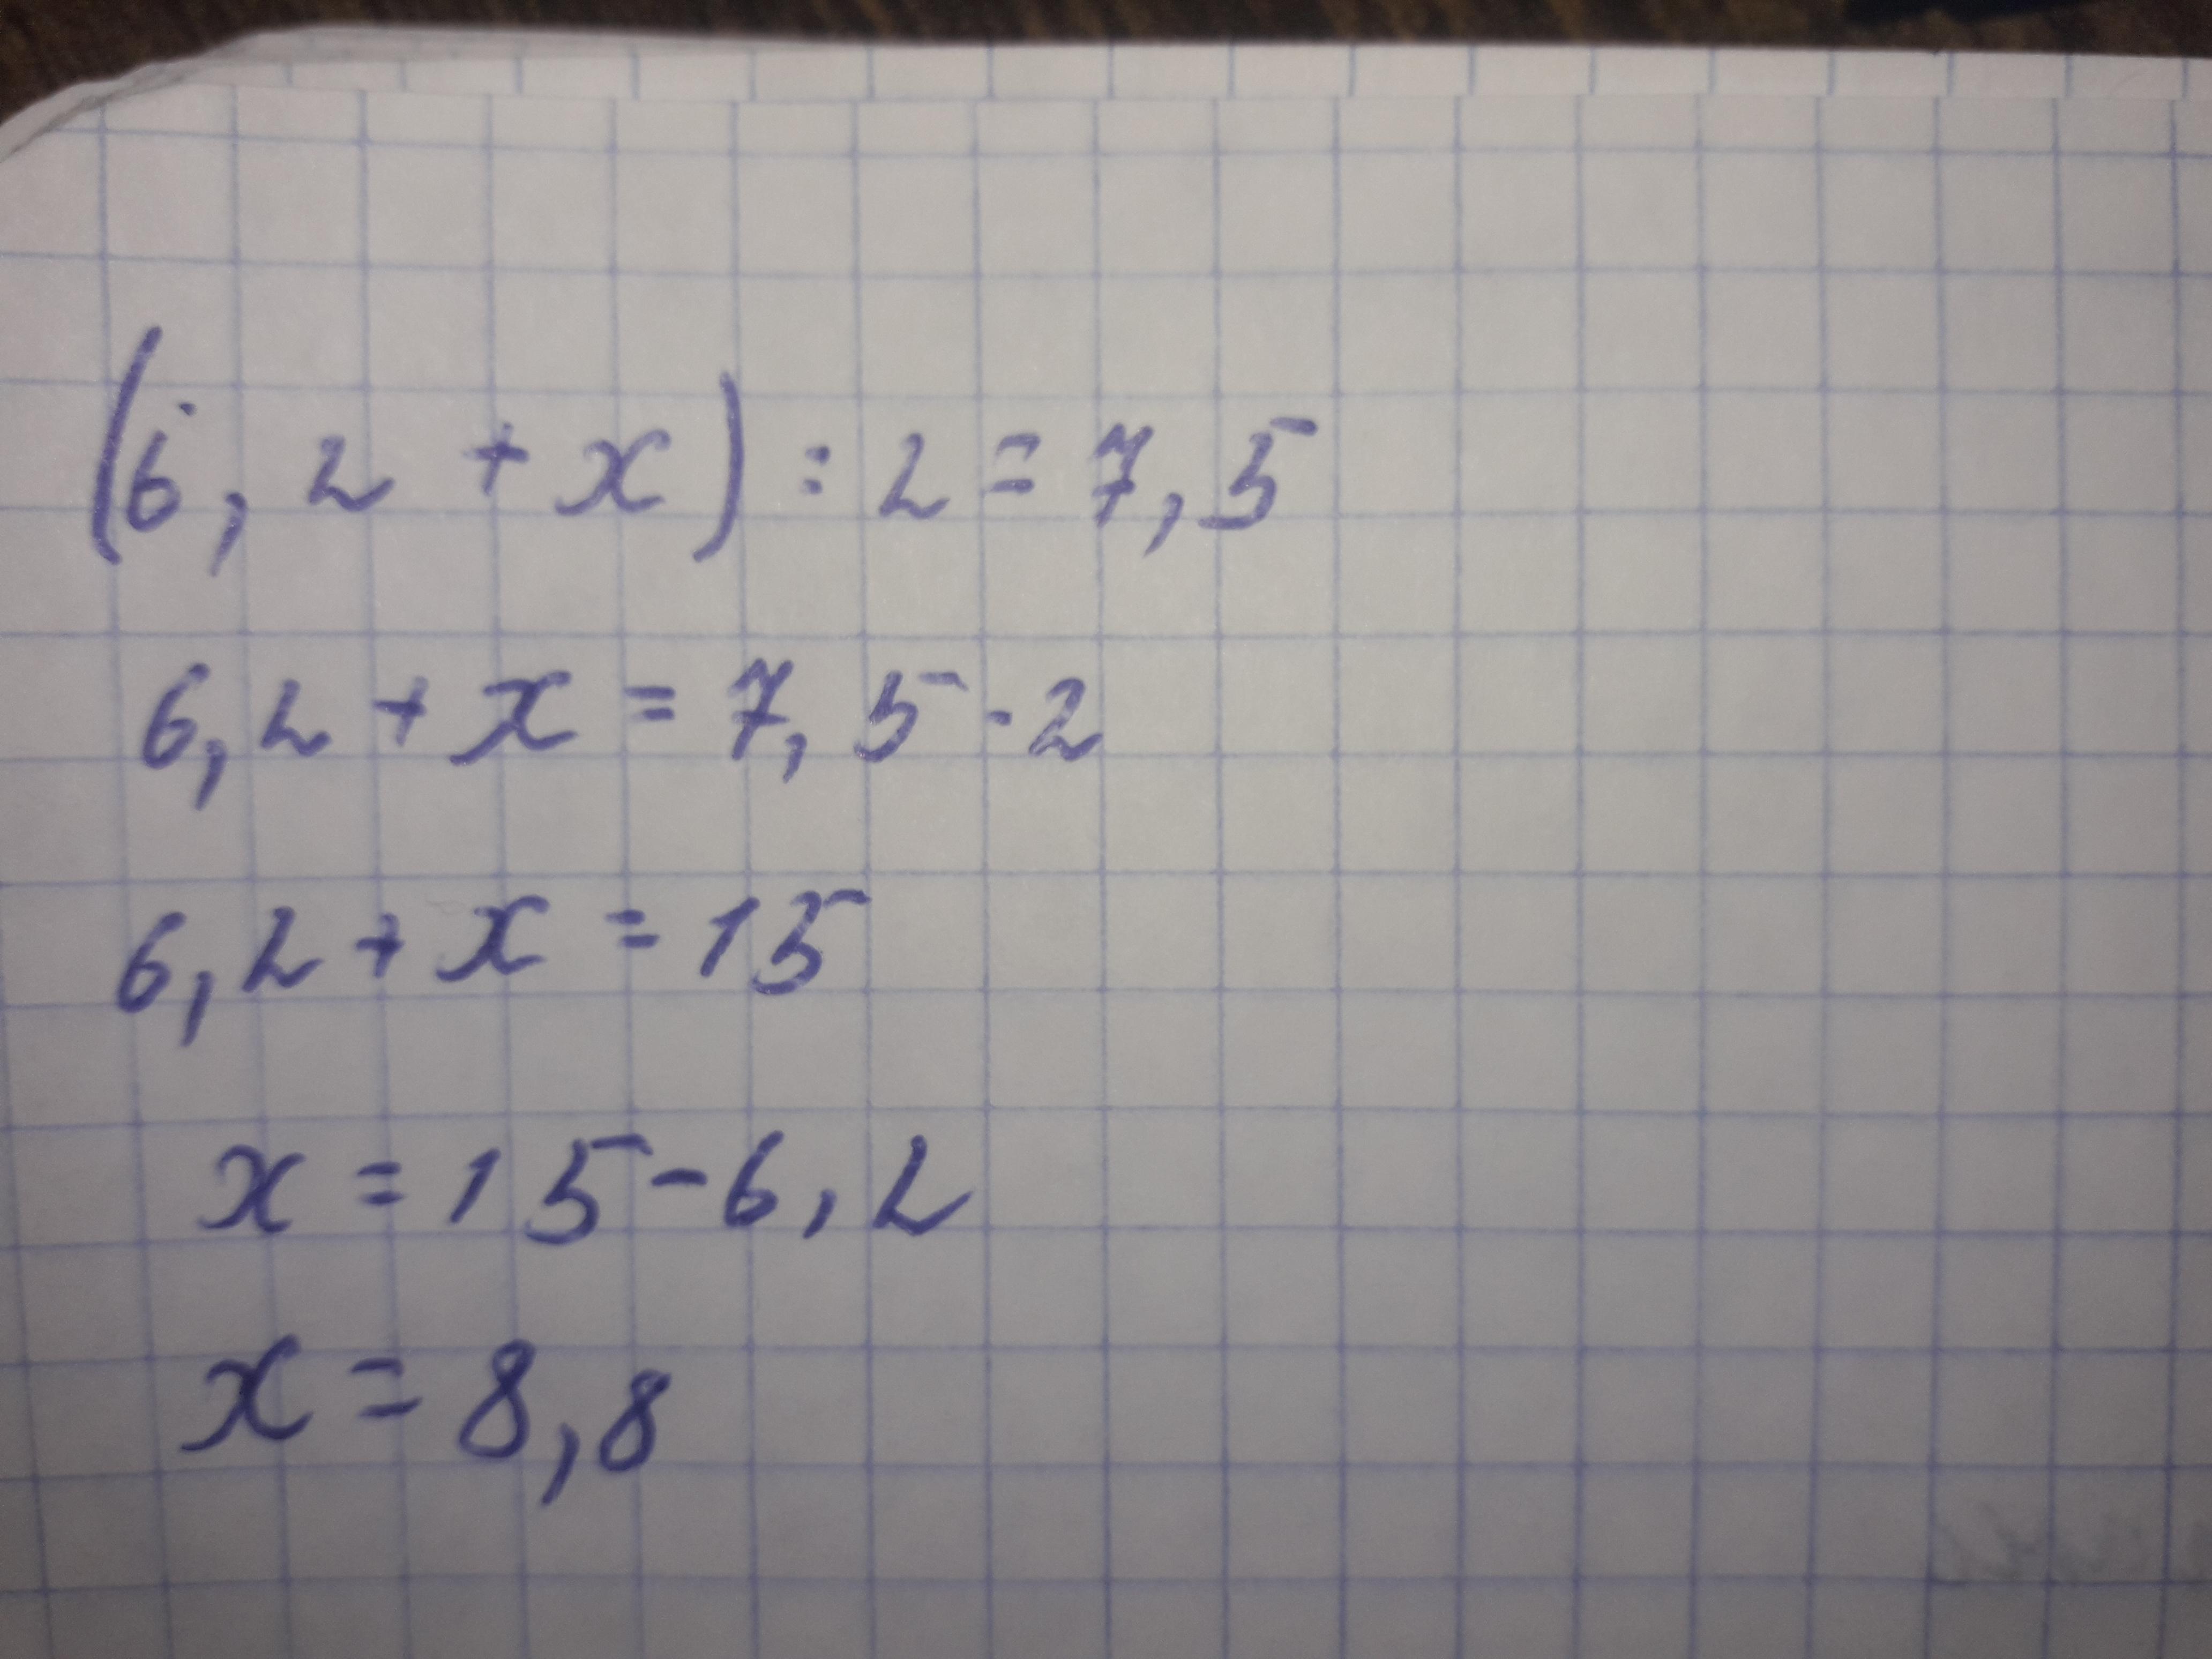 (6,2 + x) : 2 = 7,5
6,2 + x = 7,5 · 2
6,2 + x = 15
x = 15 - 6,2
x = 8,8